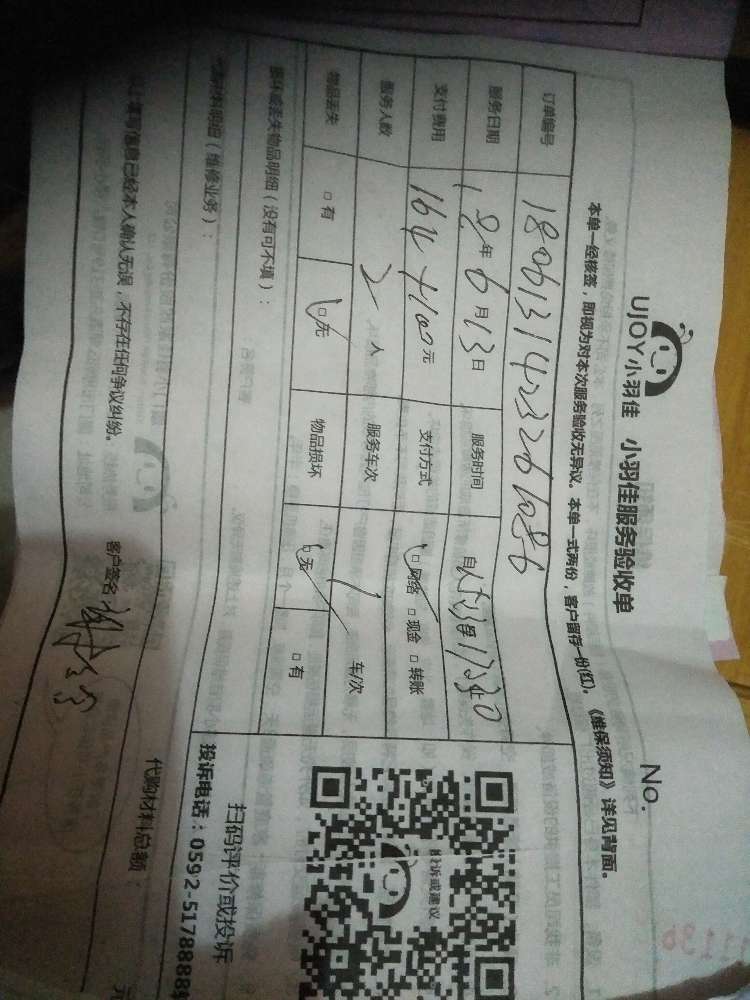 UJOY小羽佳 小羽佳服务验收单
No.
本单一经核签，即视为对本次服务验收无异议。本单一式两份，客户留存一份(红)。《维保须知》详见背面。
订单编号
服务日期 18年6月13日 服务时间 自
支付费用 164+100元 支付方式 □网络 □现金 □转账
服务人数 2人 服务车次 1 车/次
物品丢失 □有 □无 物品损坏 □无 □有
损坏或丢失物品明细（没有可不填）：
材料明细（维修业务）：
代购材料总额： 元
填写信息已经本人确认无误，不存在任何争议纠纷。
客户签名
投诉或建议
扫码评价或投诉
投诉电话：0592-5178888